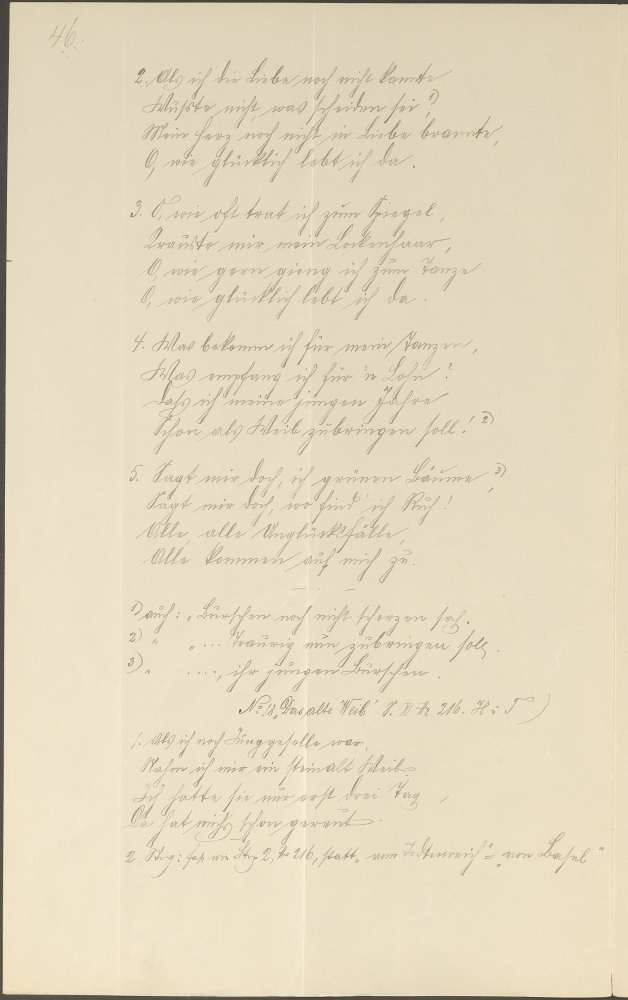 46.
2. Als ich die Liebe noch nicht kannte
Wußte nicht, was scheiden sei, 1)
Mein Herz noch nicht in Liebe brannte,
O, wie glücklich lebt ich da.
3. O, wie oft trat ich zum Spiegel,
Krauste mir mein Lockenhaar,
O, wie gern gieng ich zum Tanze
O, wie glücklich lebt ich da.
4. Was bekomm ich für mein Tanzen,
Was empfang ich für 'n Lohn?
Daß ich meine jungen Jahre
Schon als Weib zubringen soll! 2)
5. Sagt mir doch, ihr grünen Bäume, 3)
Sagt mir doch, wo find' ich Ruh!
Alle, alle Unglücksfälle,
Alle kommen auf mich zu.
1) auch: „Burschen noch nicht scherzen sah.
2) " „... Traurig nun zubringen soll.
3) " ...., ihr jungen Burschen.
No 18. „Das alte Weib" S. II No 216. H: T)
1. Als ich noch Junggeselle war,
Nahm ich mir ein steinalt Weib
Ich hatte sie nur erst drei Tag,
Da hat mich's schon gereut.
2 Str: fast wie Str 2, No 216, statt „am " = „von Basel"